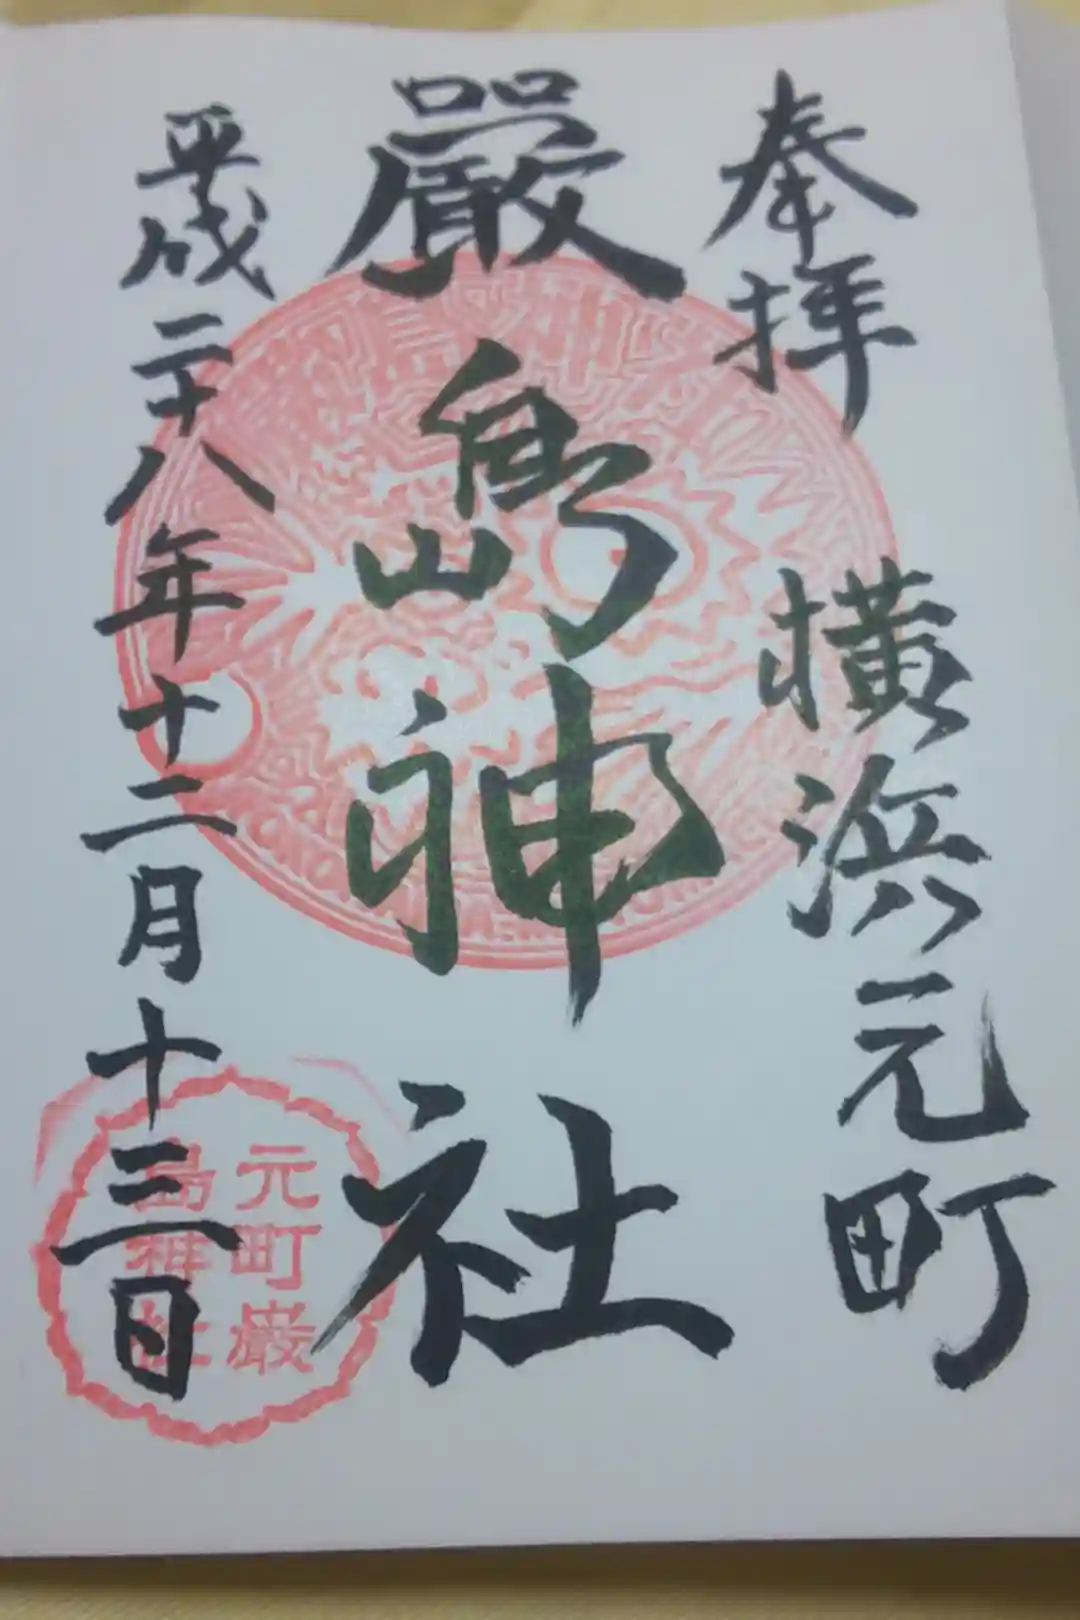 奉拝
横浜元町
嚴島神社
平成二十八年十二月十三日
元町巌
島神社